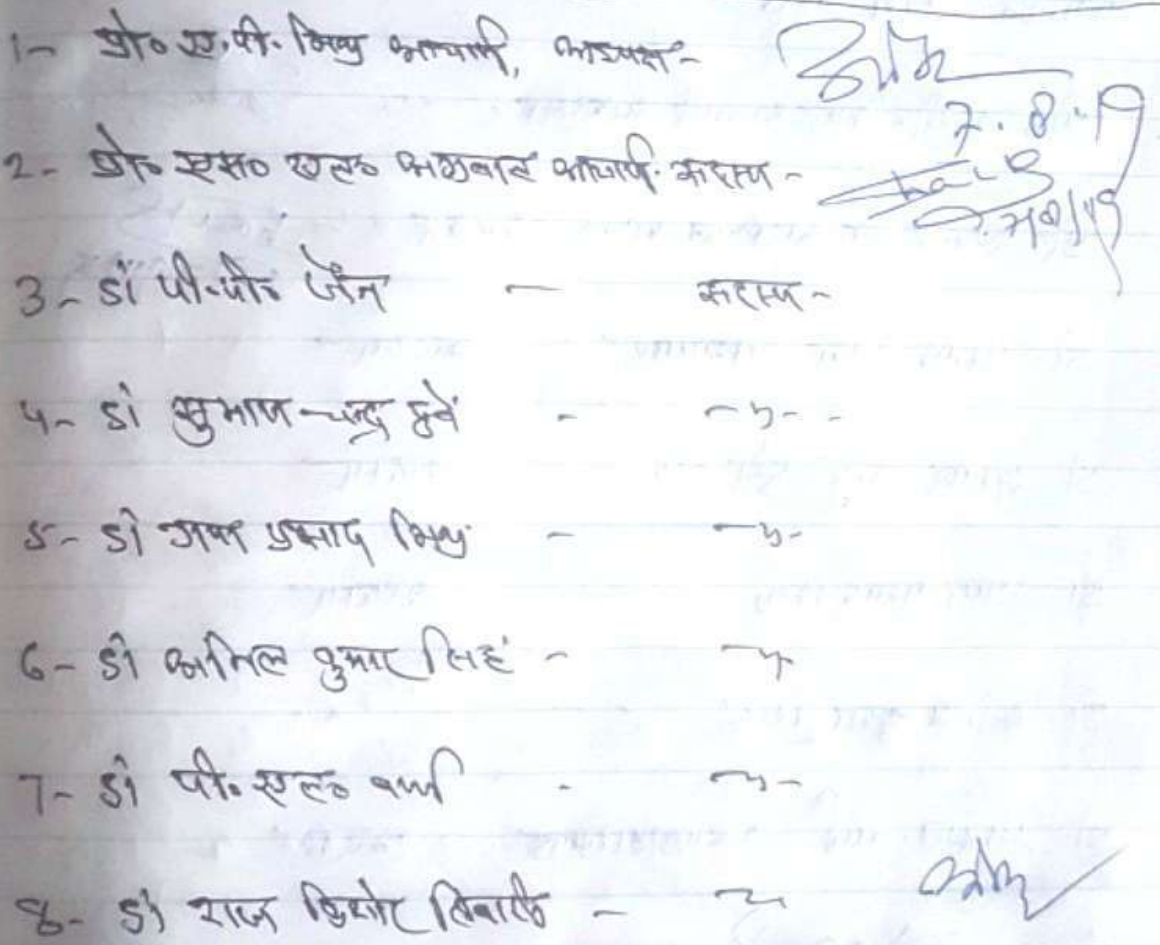 1- प्रो० ए.पी. मिश्र आचार्य, अध्यक्ष-
7.8.19
2- प्रो० एस० एल० अग्रवाल आचार्य. सदस्य -
3- डॉ पी.पी. जैन - सदस्य -
4- डॉ सुभाष चन्द्र दुबे - -"-
5- डॉ प्रसाद मिश्र - -"-
6- डॉ अनिल कुमार सिहं - -"-
7- डॉ पी. एल० वर्मा - -"-
8- डॉ राज किशोर तिवारी -